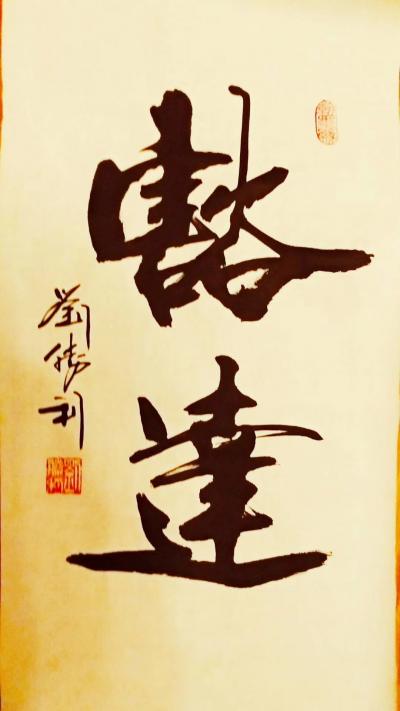 豁達
劉勝利